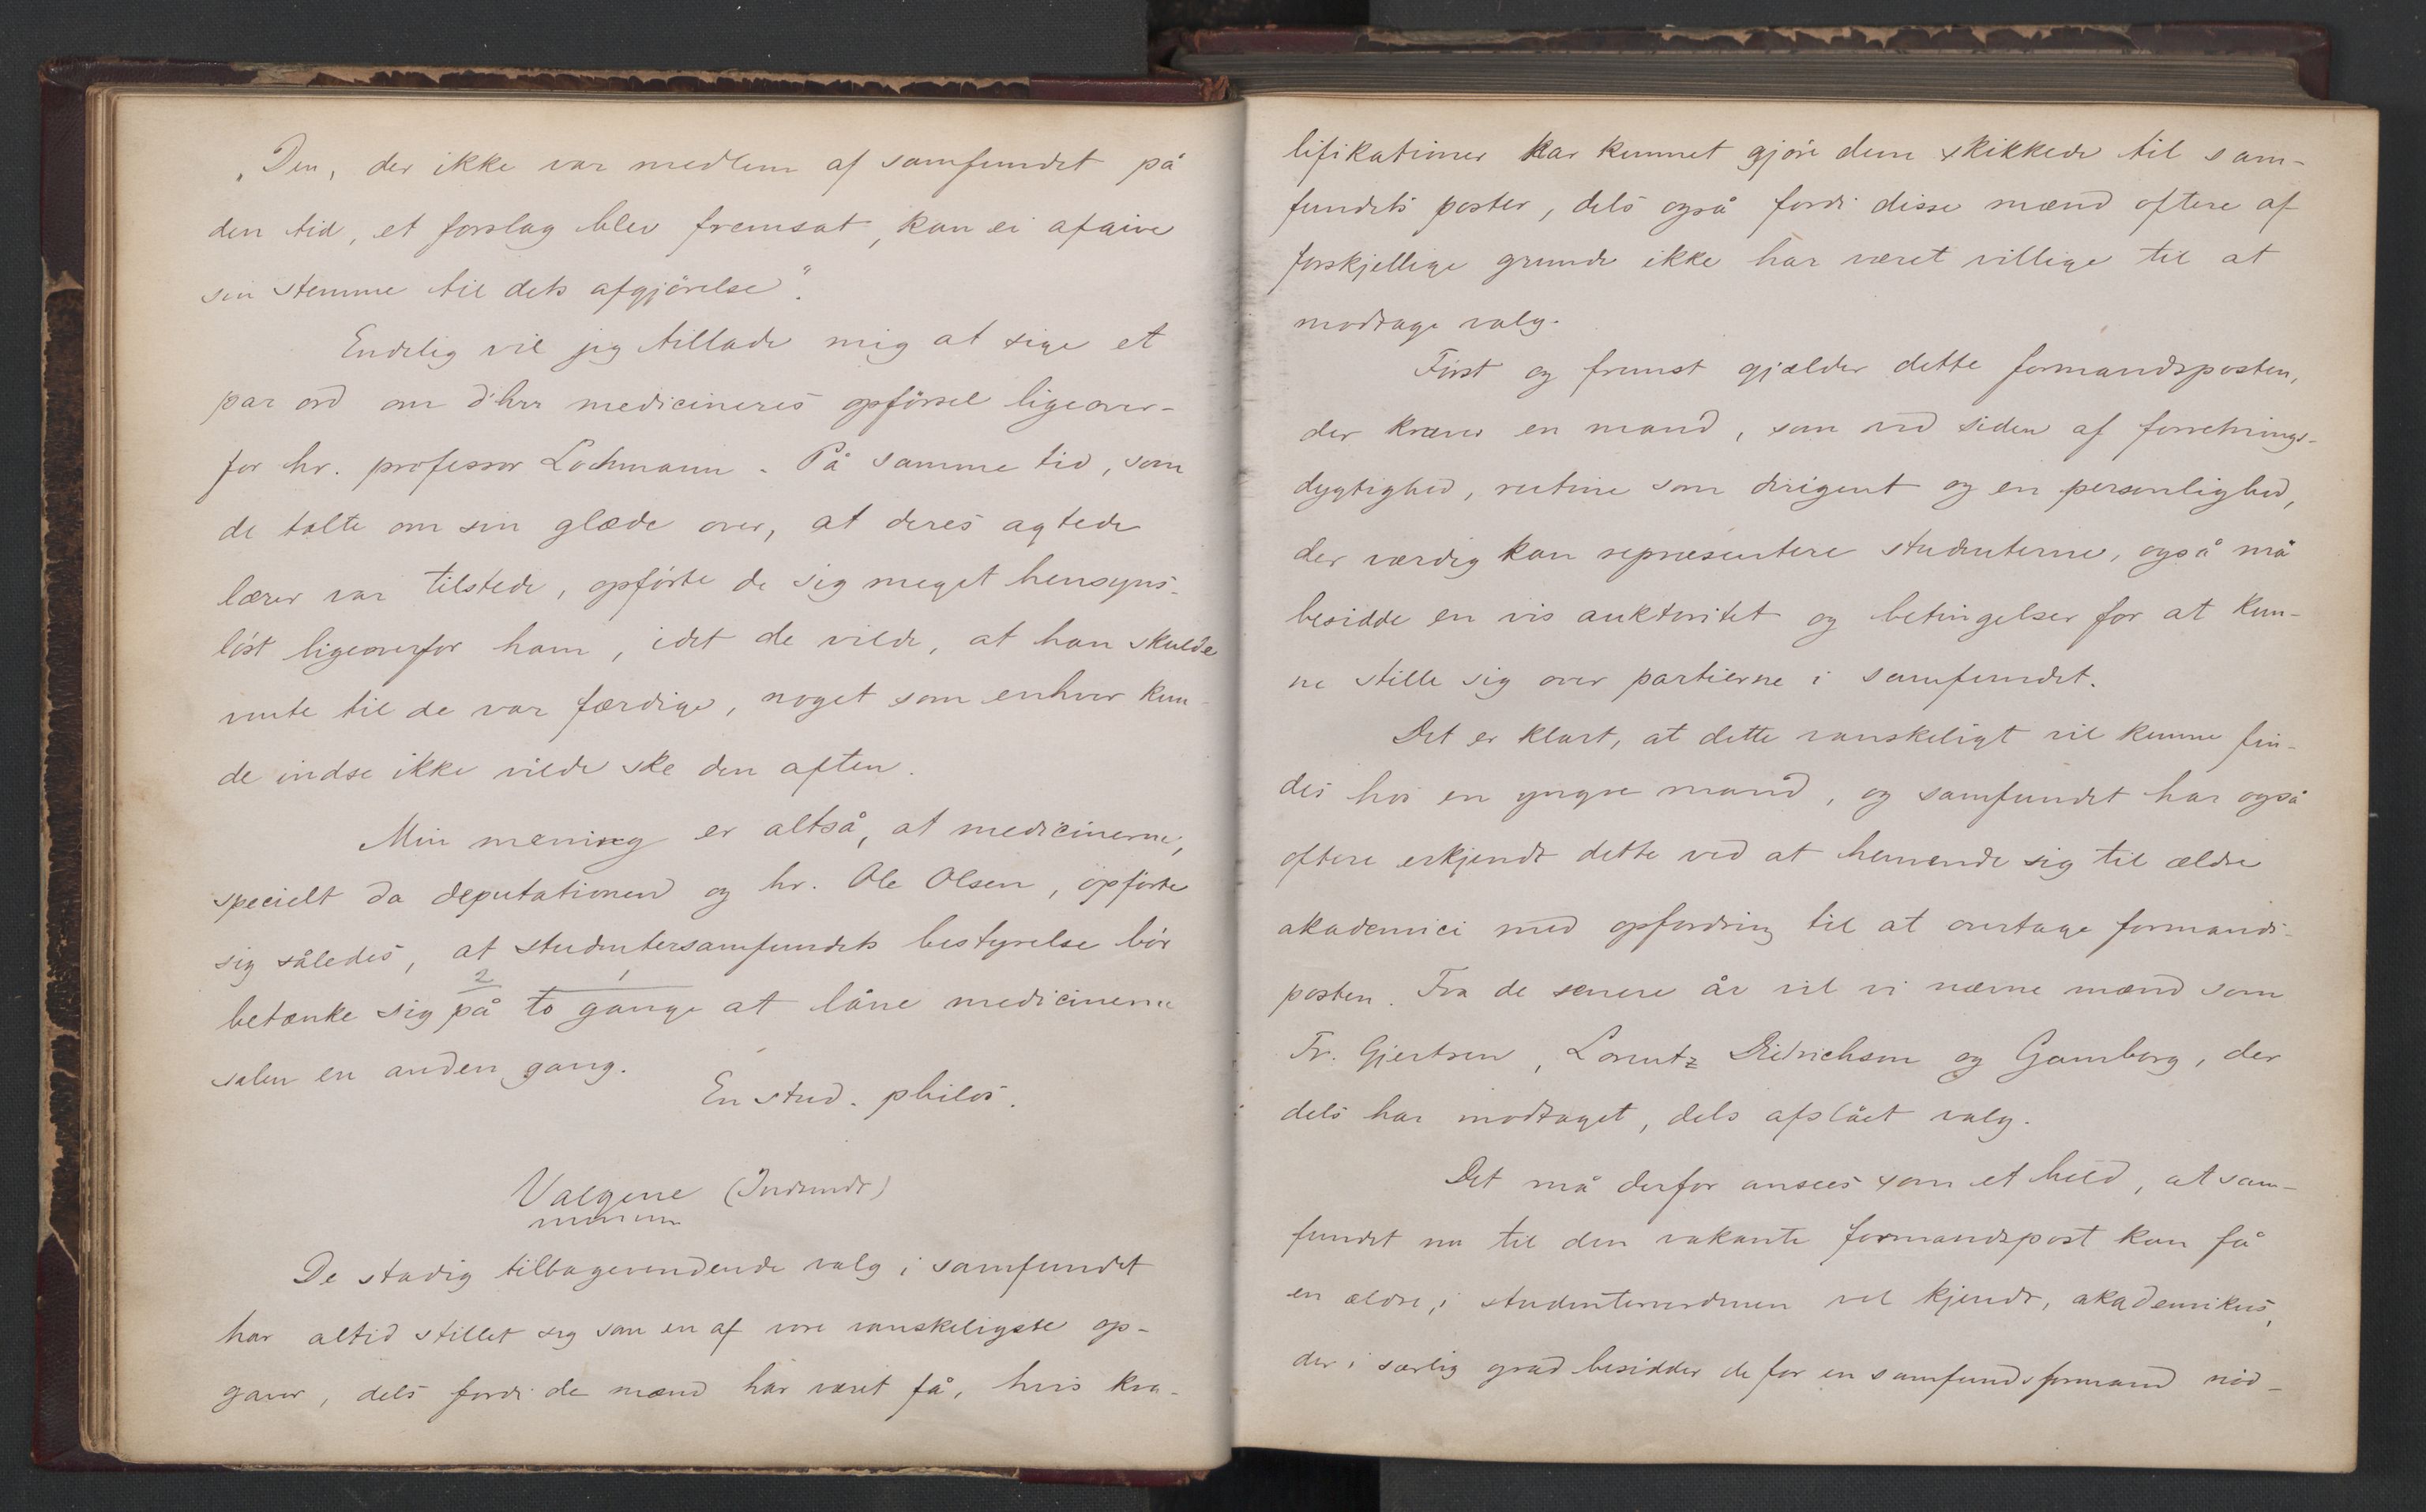 „Den, der ikke var medlem af samfundet på
den tid, et forslag blev fremsat, kan ei afgive
sin stemme til dets afgjörelse".
Endelig vil jeg tillade mig at sige et
par ord om d'hrr medicineres opførsel ligeover-
for hr. professor Lochmann. På samme tid, som
de talte om sin glæde over, at deres agtede
lærer var tilstede, opførte de sig meget hensyns-
løst ligeoverfor ham, idet de vilde, at han skulde
vente til de var færdige, noget som enhver kun-
de indse ikke vilde ske den aften.
Min mening er altså, at medicinerne,
specielt da deputationen og hr. Ole Olsen, opførte
sig således, at studentersamfundets bestyrelse bör
2 1
betænke sig på to gange at låne medicinerne
salen en anden gang.
En stud. philos.
Valgene (Indsendt)
De stadig tilbagevendende valg i samfundet
har altid stillet sig som en af vore vanskeligste op-
gaver, dels fordi de mænd har været få, hvis kva-
lifikationer har kunnet gjöre dem skikkede til sam-
fundets poster, dels også fordi disse mænd oftere af
forskjellige grunde ikke har været villige til at
modtage valg.
Först og fremst gjælder dette formandsposten,
der kræver en mand, som ved siden af forretnings-
dygtighed, rutine som dirigent og en personlighed,
der værdig kan repræsentere studenterne, også må
besidde en vis auktoritet og betingelser for at kun-
ne stille sig over partierne i samfundet.
Det er klart, at dette vanskeligt vil kunne fin-
des hos en yngre mand, og samfundet har også
oftere erkjendt dette ved at henvende sig til ældre
akademici med opfordring til at overtage formands-
posten. Fra de senere år vil vi nævne mænd som
Fr. Gjertsen, Lorentz Dietrichson og Gamborg, der
dels har modtaget, dels afslået valg.
Det må derfor ansees som et held, at sam-
fundet nu til den vakante formandspost kan få
en ældre, i studenterverdenen vel kjendt, akademikus,
der i særlig grad besidder de for en samfundsformand nöd-